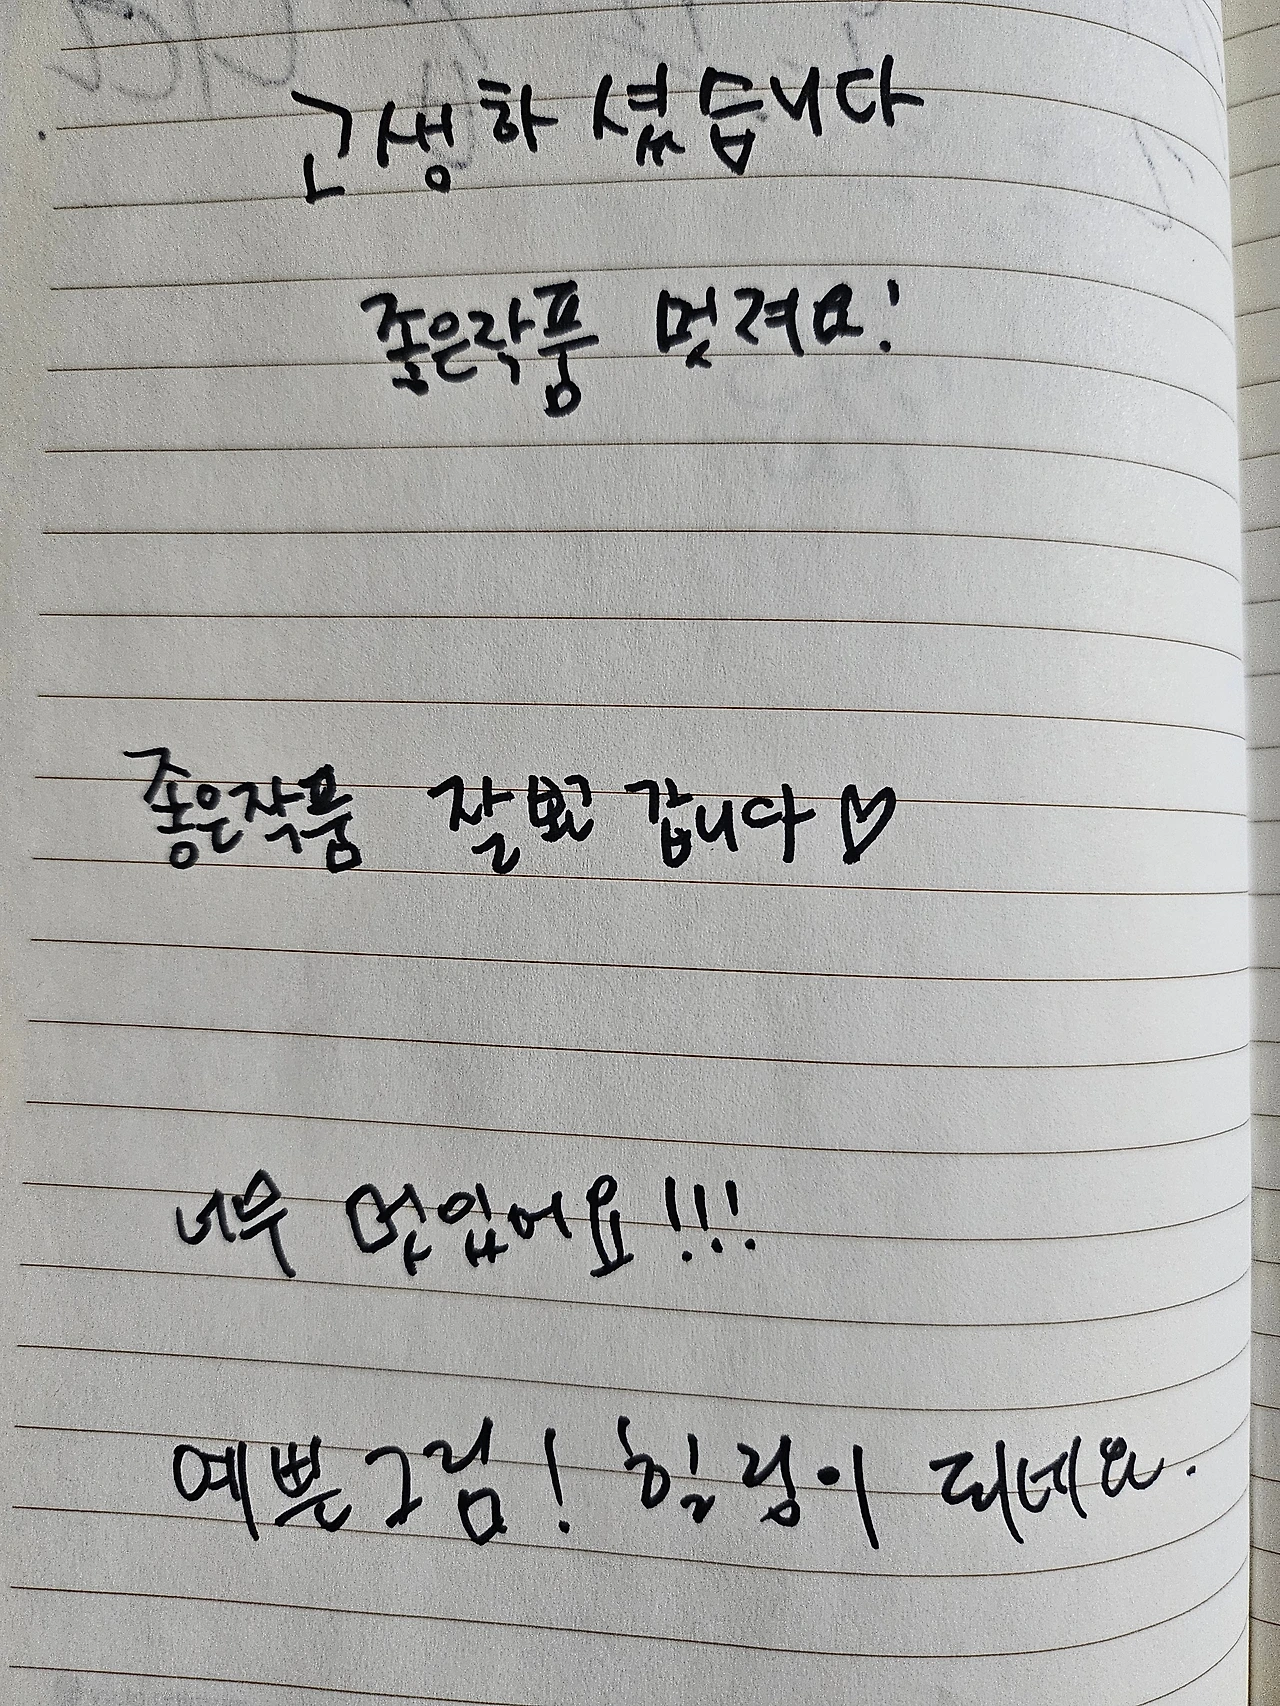 고생하셨습니다
좋은작품 멋져요!
좋은작품 잘보고 갑니다♡
너무 멋있어요!!!
예쁜그림! 힐링이 되네요.